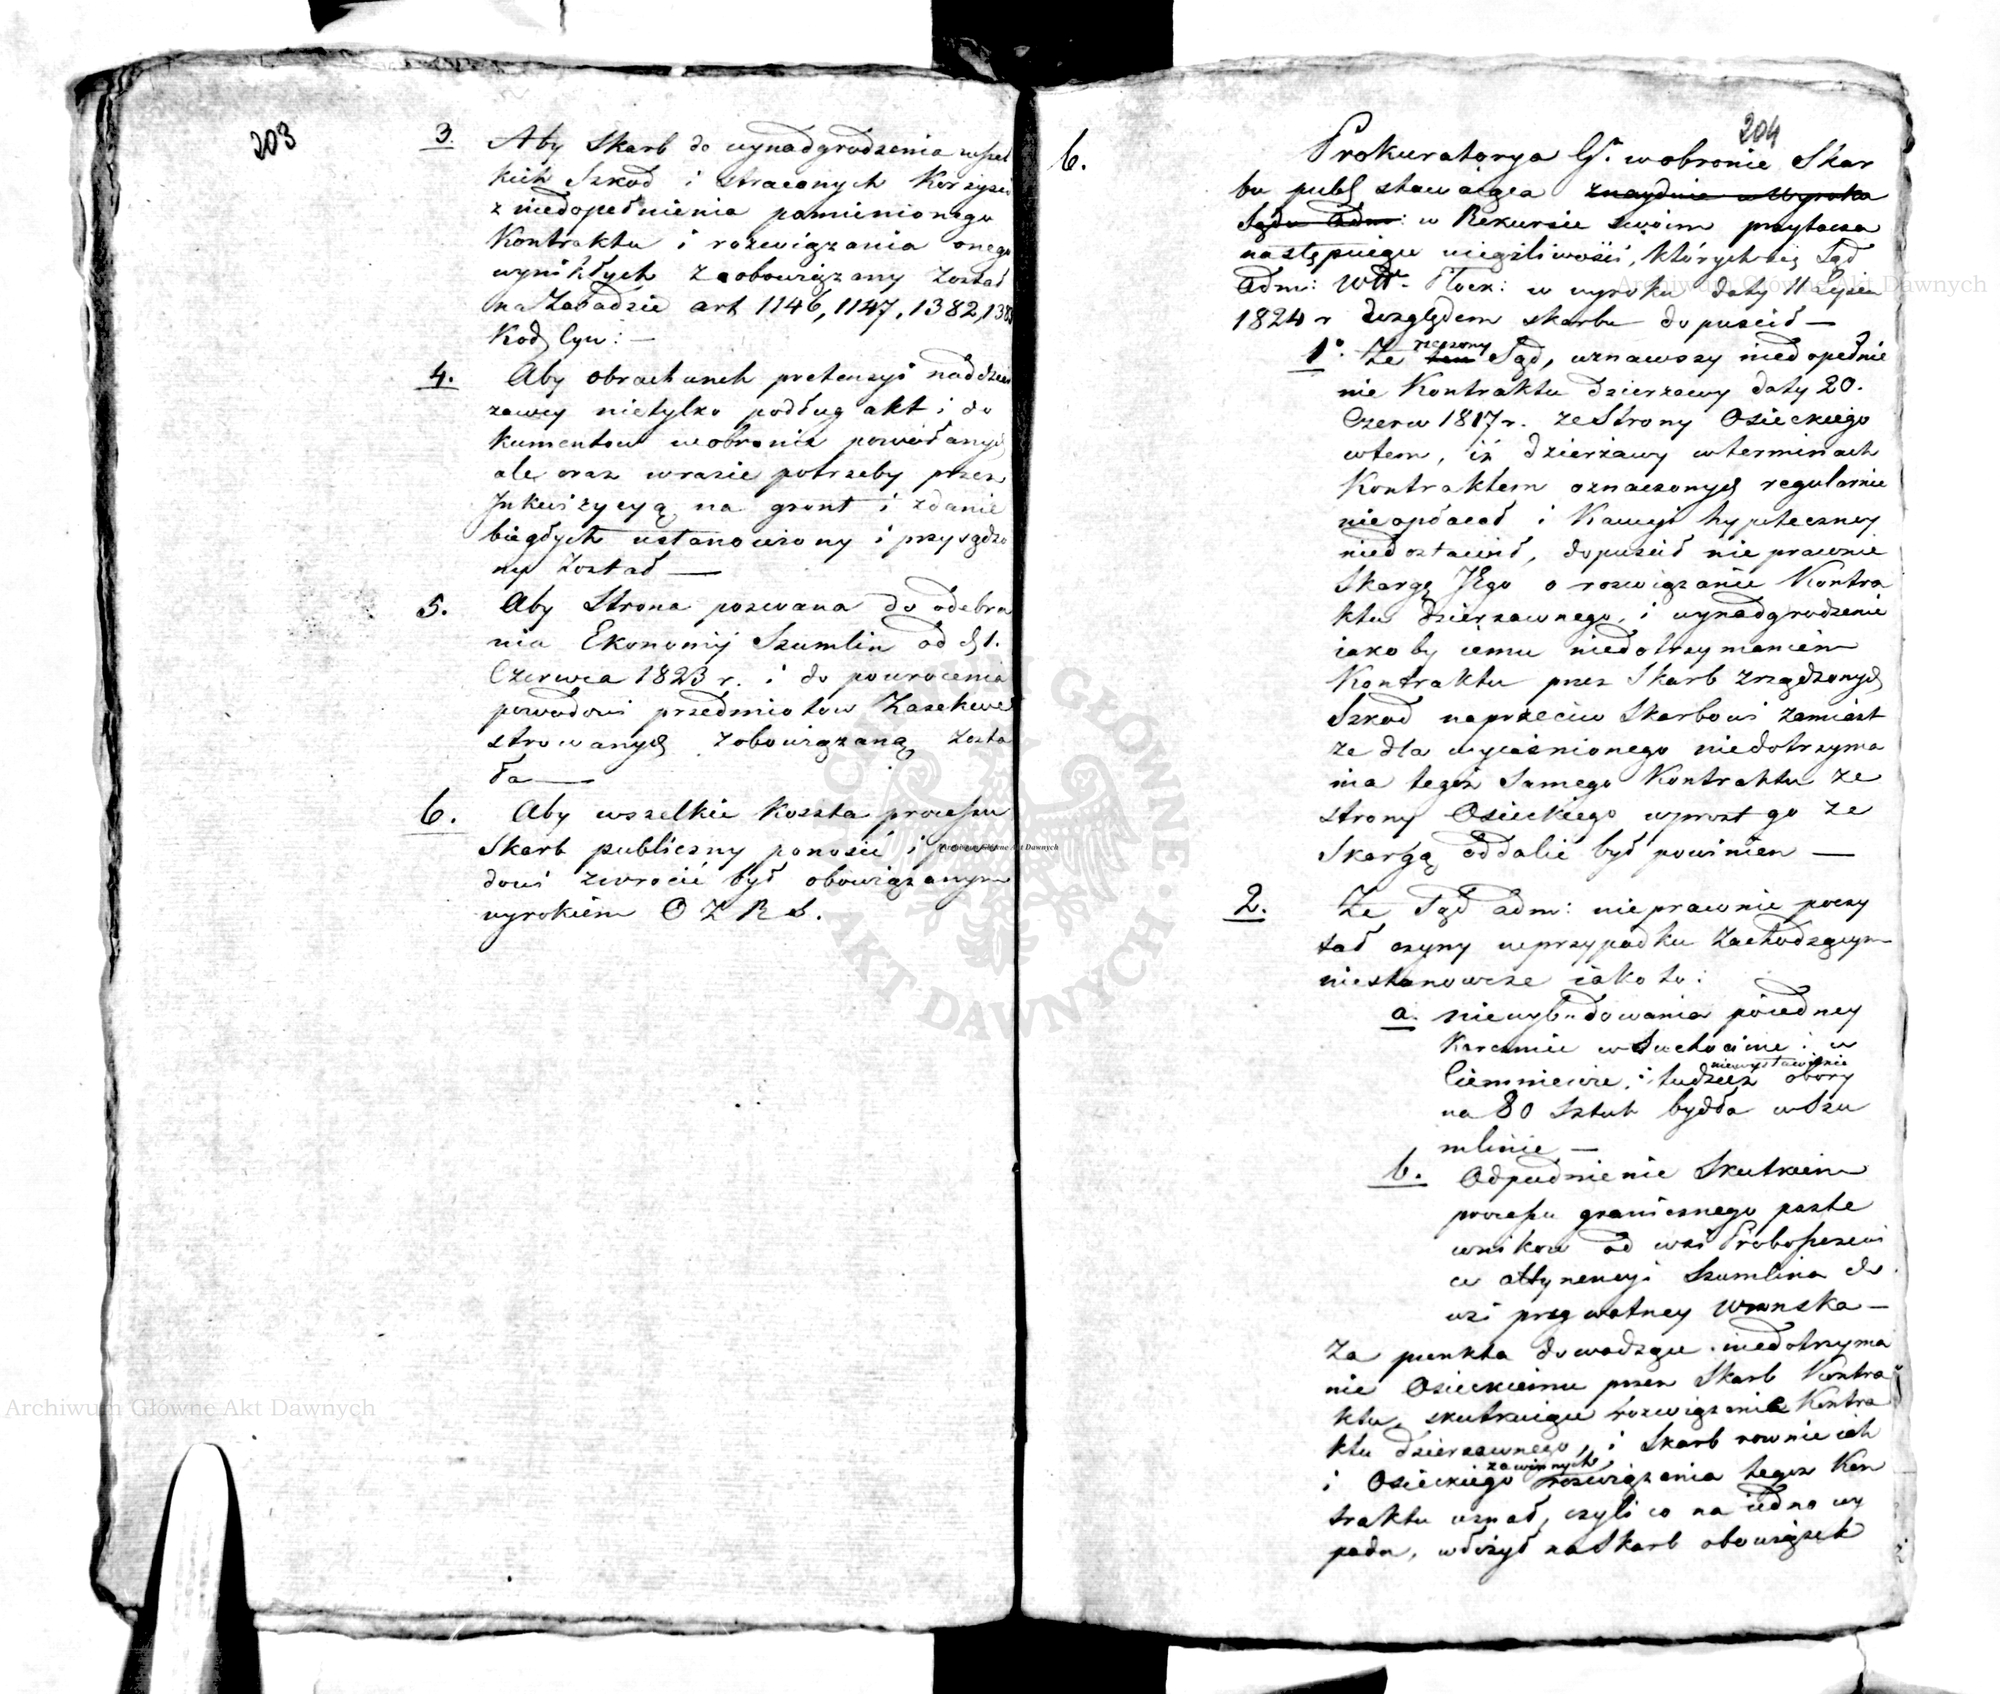 203
3. Aby Skarb do wynadgrodzenia wszel
kich Szkod i straconych Korzyści
z niedopełnienia pomienionego
Kontraktu i rozwiązania onego
wynikłych zaobowiązany został
na Zasadzie art 1146, 1147, 1382, 1383
Kod Cyw: —
4. Aby obrachunek pretensyi naddzier
zawcy nietylko podług akt i do
kumentow w obronie powołanych
ale oraz w razie potrzeby przez
Inkwizycyą na gront i zdanie
biegłych ustanowiony i przysądzo
ny został —
5. Aby Strona pozwana do odebra
nia Ekonomij Szumlin od d 1.
Czerwca 1823 r. i do powrocenia
powodowi przedmiotow Zasekwe
strowanych zobowiązaną zosta
ła —
6. Aby wszelkie koszta processu
Skarb publiczny ponosić i powo
dowi zwrocić był obowiązanym
wyrokiem O Z R S.
204
6. Prokuratorya Gł. w obronie Skar
bu publ stawaiąca znayduie w Wyroku
Sądu Adm: w Rekursie swoim przytacza
następuiące uciążliwości, których się Sąd
Adm: Wdt. Płock: w wyroku daty 11 Lipca
1824 r względem skarbu dopuścił —
1°. Że ten rzeczony Sąd, uznawszy niedopełnie
nie Kontraktu dzierzawy daty 20.
Czerw 1817 r. ze Strony Osieckiego
w tem, iż dzierżawy w terminach
Kontraktem oznaczonych regularnie
nieopłacał i Kaucyi hypoteczney
niedostawił, dopuścił nie prawnie
Skargę JEgo o rozwiązanie Kontra
ktu dzierzawnego, i wynadgrodzenie
iakoby iemu niedotrzymaniem
Kontraktu przez Skarb zrządzonych
Szkod naprzeciw Skarbowi zamiast
że dla wyiaśnionego niedotrzyma
nia tegoż samego Kontraktu ze
strony Osieckiego wprost go ze
Skargą oddalić był powinien —
2. Że Sąd adm: nieprawnie poczy
tał czyny w przypadku Zachodzącym
niestanowcze iako to:
a. niewybudowania poiedney
Karczmie w Suchocinie i w
Ciemniewie, i tudzież niewystawienie obory
na 80 Sztuk bydła w Szu
mlinie —
b. Odpadnienie Skutkiem
processu granicznego paste
wnikow od wsi Proboszczewi
ce attynencyi Szumlina do
wsi prywatney Wronska —
Za punkta dowodzące niedotrzyma
nie Osieckiemu przez Skarb Kontra
ktu, skutkuiące rozwiązanie Kontra
ktu dzierzawnego, i Skarb rownie iak
i Osieckiego zawinnych rozwiązania tegoż Kon
traktu uznał, czyli co na iedno wy
pada, włożył na Skarb obowiązek